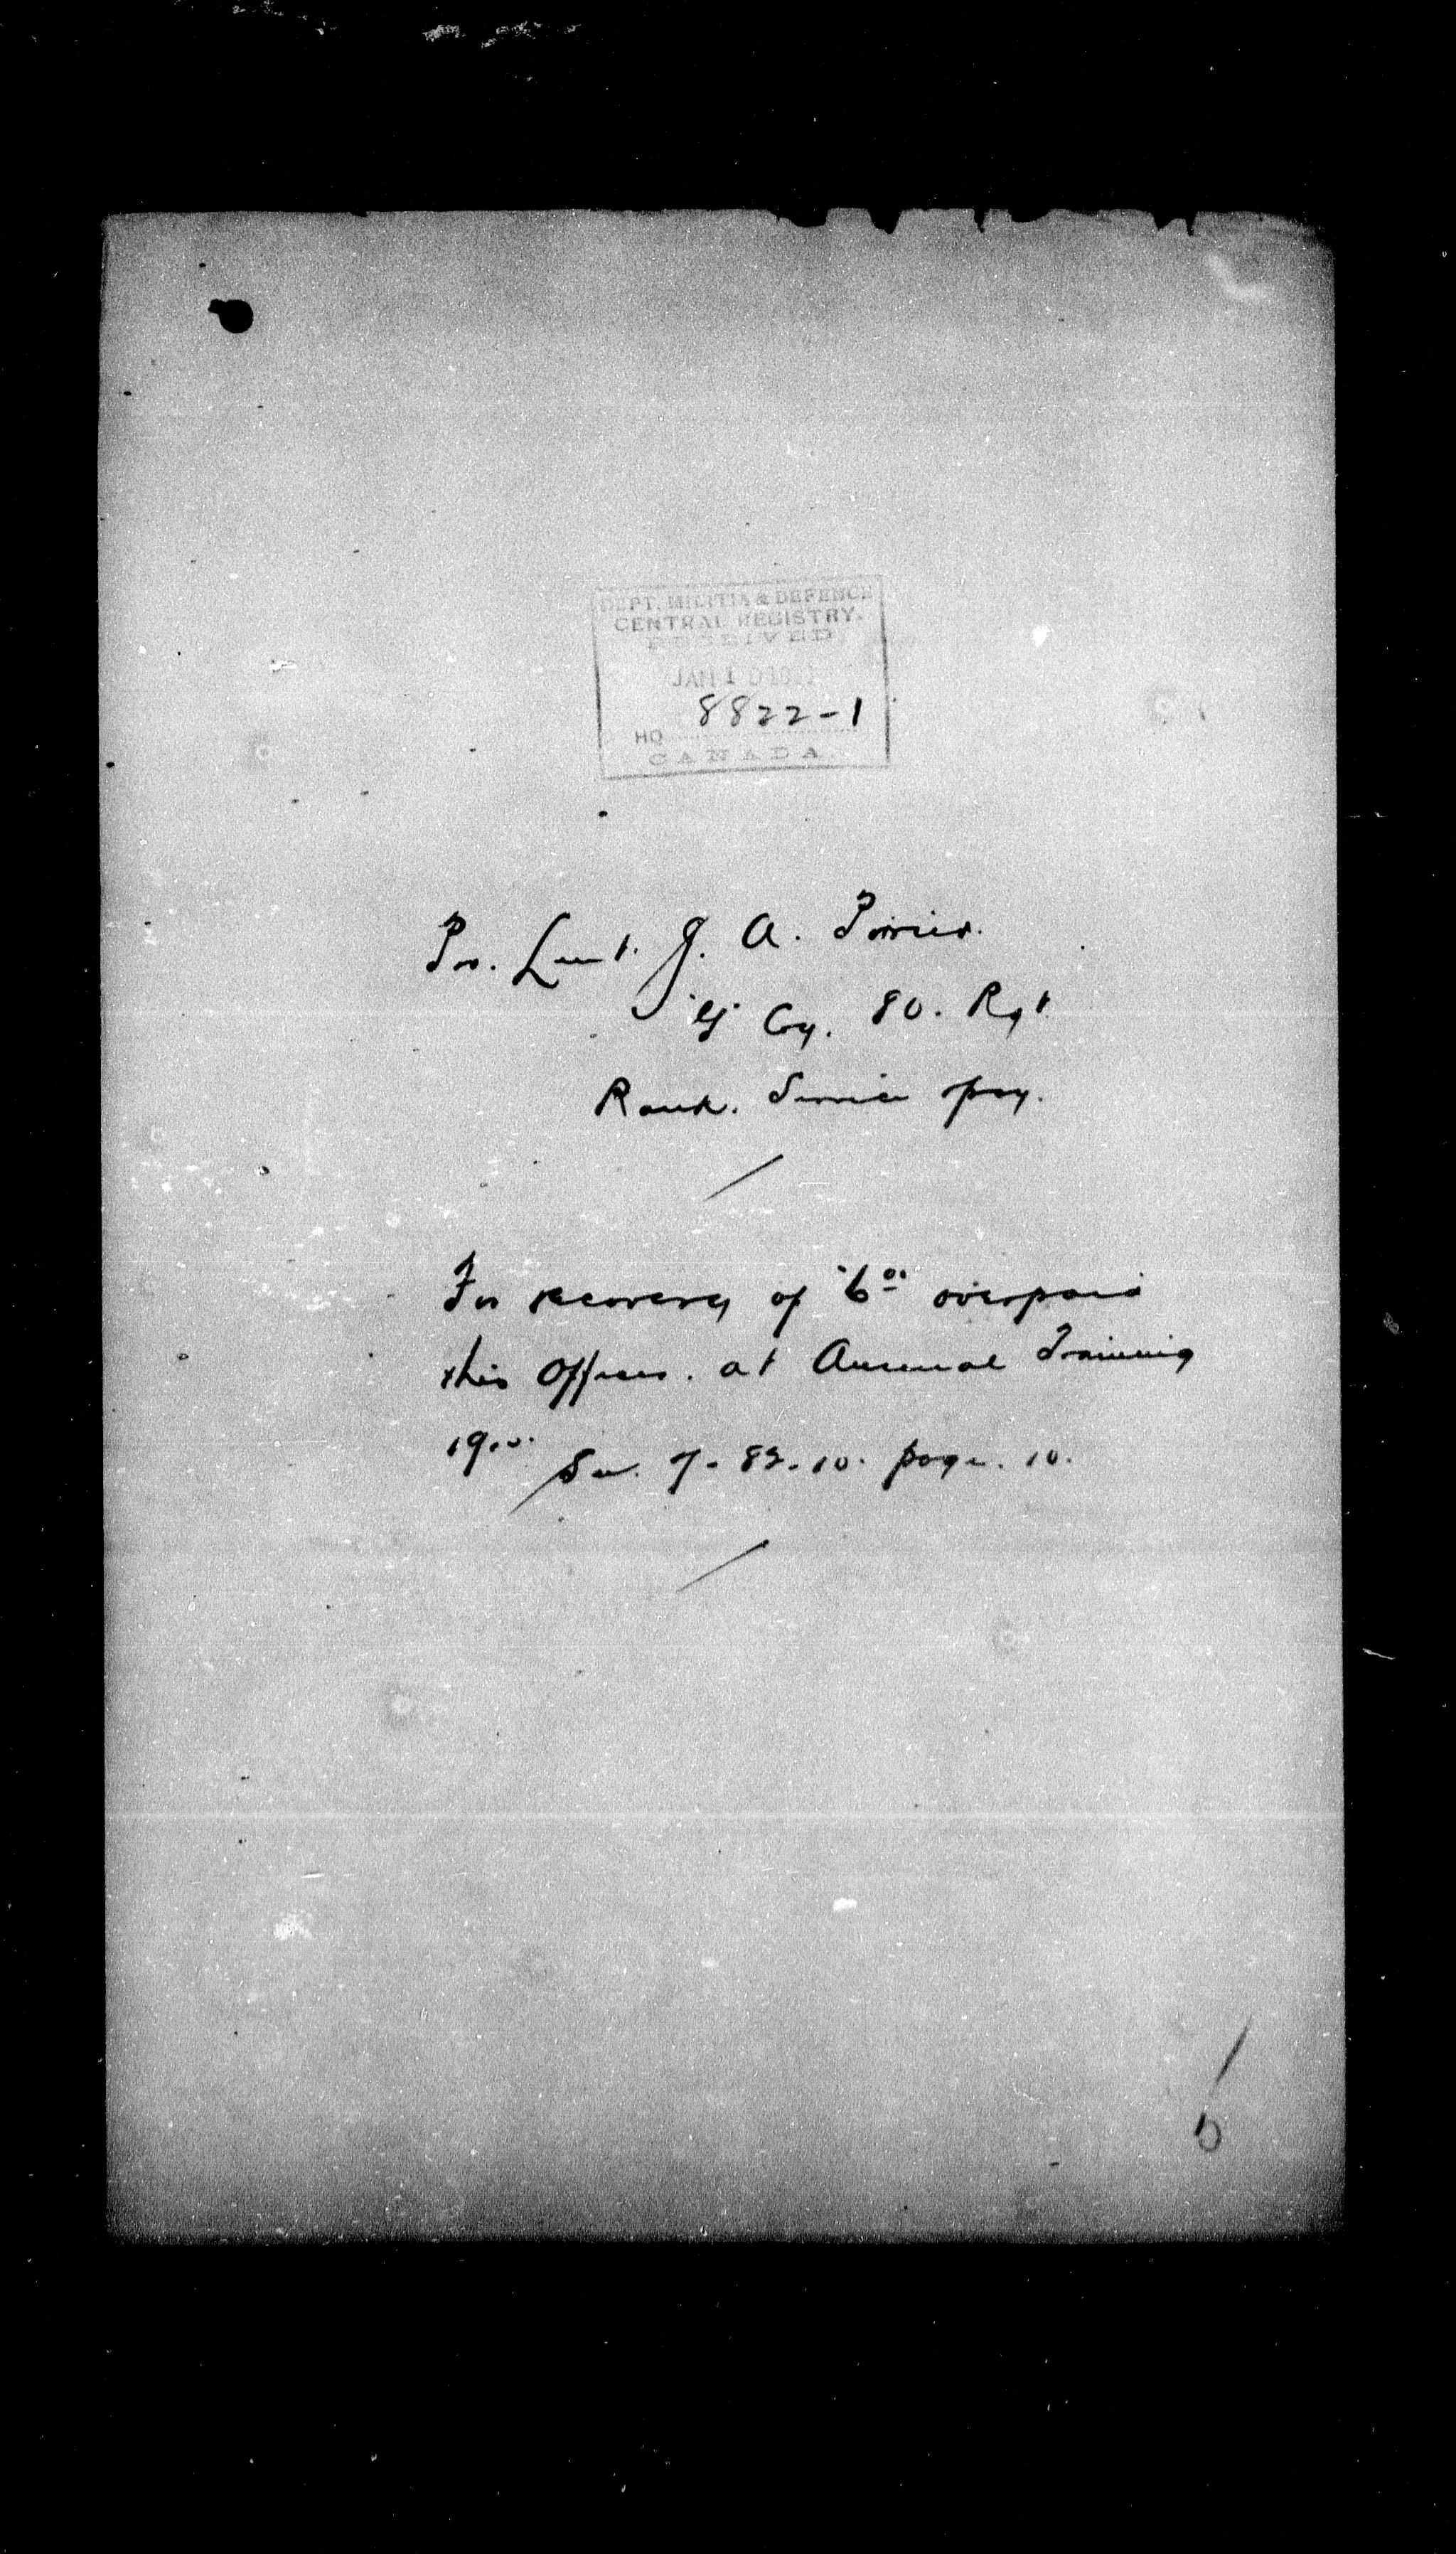 DEPT. MILITIA & DEFENCE
CENTRAL REGISTRY.
RECEIVED
JAN 10
8822-1
HQ
CANADA
Pr. Lieut. J. A. Poirier.
Cy. 80. Rgt
Rank. Service pay.
For recovery of $6.00 overpaid
this Officer. at Annual Training
1910. See. 7-83-10. page. 10.